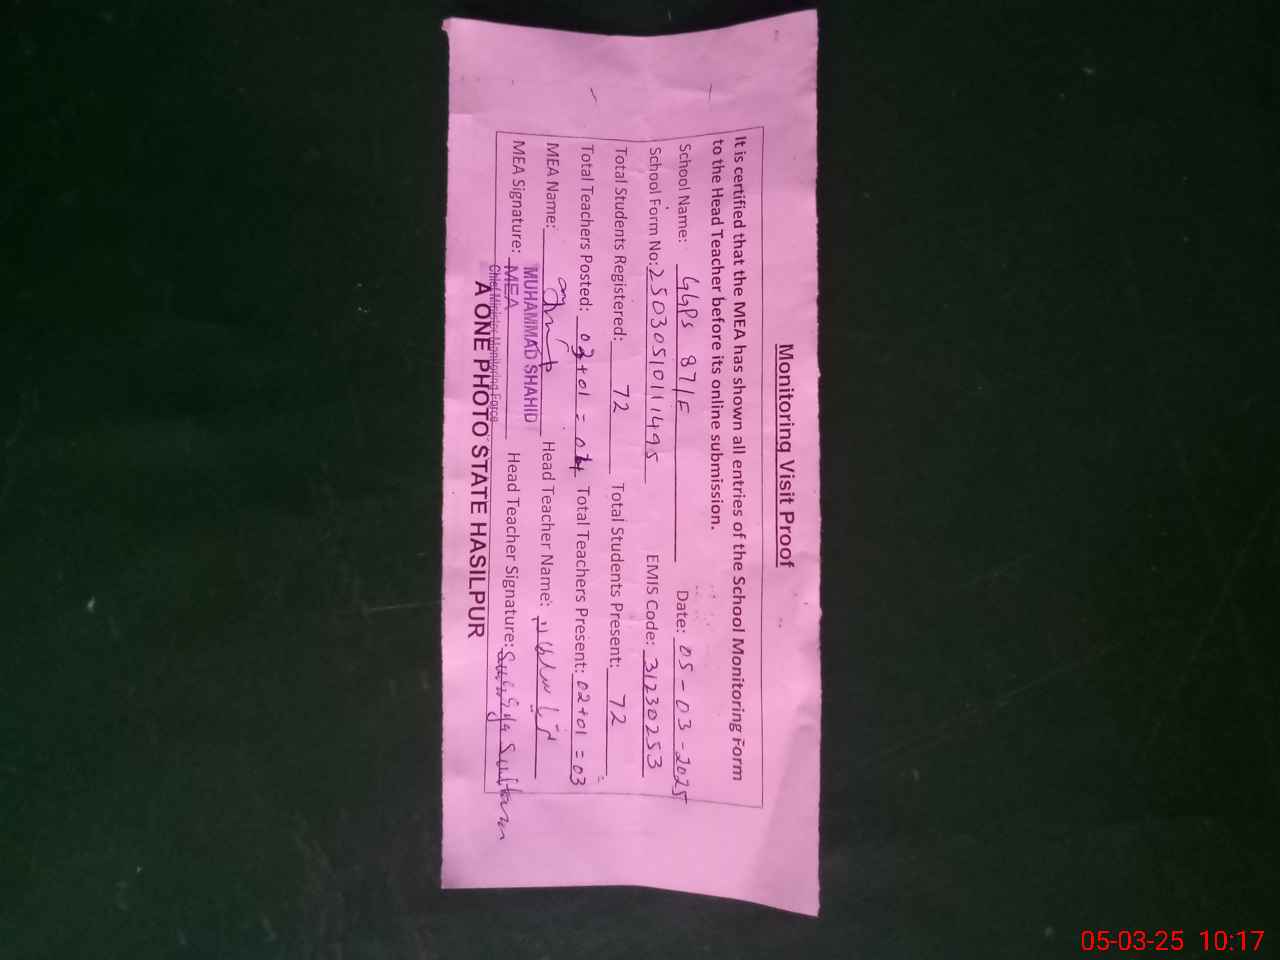 Monitoring Visit Proof
It is certified that the MEA has shown all entries of the School Monitoring Form
to the Head Teacher before its online submission.
School Name: GGPS 87/F Date: 05-03-2025
School Form No: 2503051011495 EMIS Code: 31230253
Total Students Registered: 72 Total Students Present: 72
Total Teachers Posted: 03+01 = 04 Total Teachers Present: 02+01 = 03
MEA Name: Head Teacher Name:
MUHAMMAD SHAHID
MEA Signature: MEA Head Teacher Signature: Sultan
Chief Minister Monitoring Force
A ONE PHOTO STATE HASILPUR
05-03-25 10:17